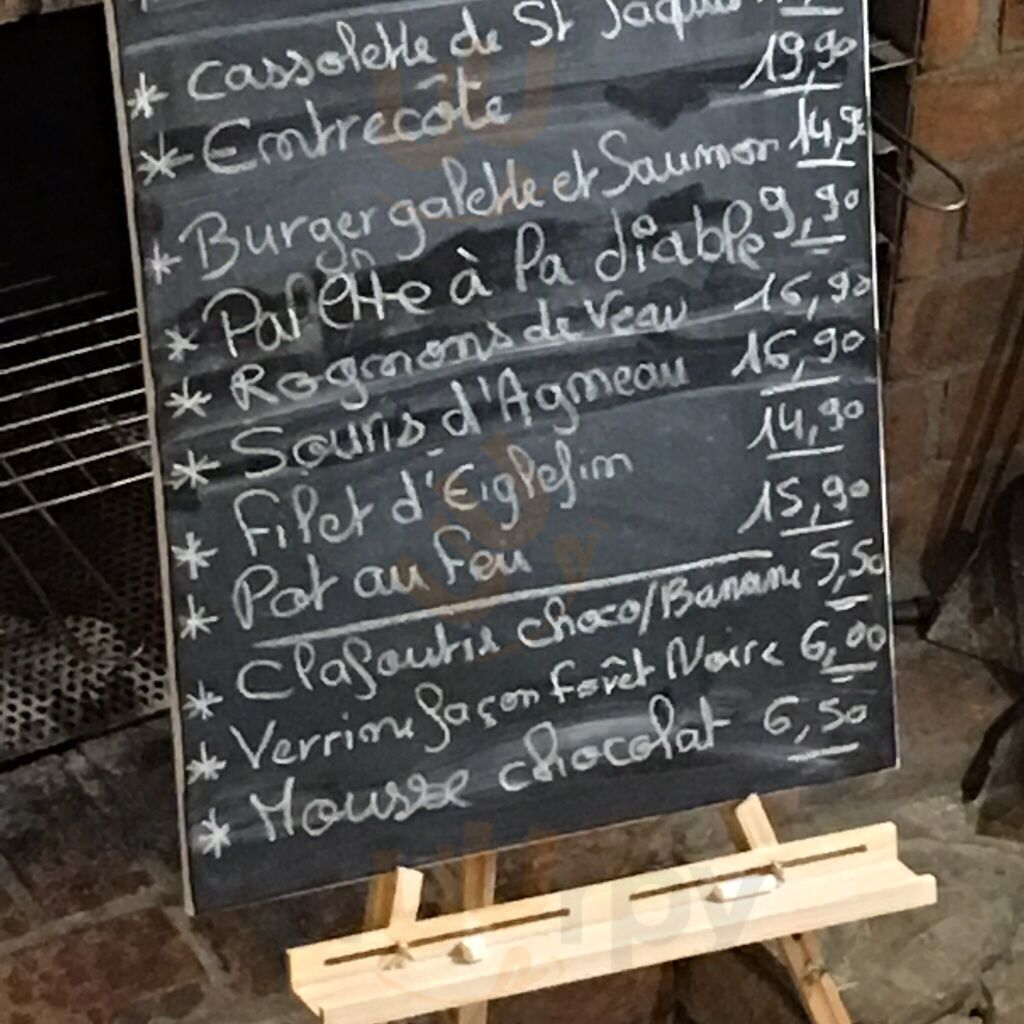 * Cassolette de St Jaques
* Entrecôte 19,90
* Burger galette et Saumon 14,90
* Palette à la diable 9,90
* Rognons de Veau 16,90
* Souris d'Agneau 16,90
* Filet d'Eiglefin 14,90
* Pot au feu 15,90
* Clafoutis choco/Banane 5,50
* Verrine façon forêt Noire 6,00
* Mousse chocolat 6,50